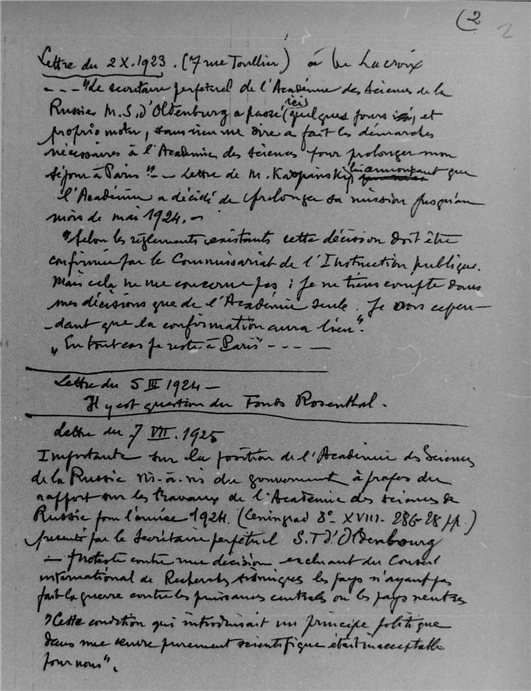 (2
2
Lettre du 2 X. 1923. (7 rue Toullier) à Mr Lacroix
- - - "Le secrétaire perpétuel de l'Académie des Sciences de la
Russie M. S. d'Oldenburg a passé ici quelques jours et,
proprio motu, sans rien me dire a fait les démarches
nécessaires à l'Académie des Sciences pour prolonger mon
séjour à Paris" - Lettre de M. Karpinsky lui annonçant que
l'Académie a décidé de prolonger sa mission jusqu'au
mois de mai 1924. -
"Selon les réglements existants cette décision doit être
confirmée par le Commissariat de l'Instruction publique.
Mais cela ne me concerne pas : je ne tiens compte dans
mes décisions que de l'Académie seule. Je crois cepen-
-dant que la confirmation aura lieu".
"En tout cas je reste à Paris" - - - -
Lettre du 5 III 1924 -
Il y est question du Fonds Rosenthal.
Lettre du 7 VII. 1925
Importante sur la position de l'Académie des Sciences
de la Russie vis-à-vis du gouvernement à propos du
rapport sur les travaux de l'Académie des sciences de
Russie pour l'année 1924. (Leningrad 8° - XVIII - 286-28 pp.)
présenté par le Secrétaire perpétuel S. d'Oldenbourg
- Proteste contre une décision excluant du Conseil
international de Recherches les pays n'ayant pas
fait la guerre contre les puissances centrales ou les pays neutres
"Cette condition qui introduisait un principe politique
dans une œuvre purement scientifique était inacceptable
pour nous".